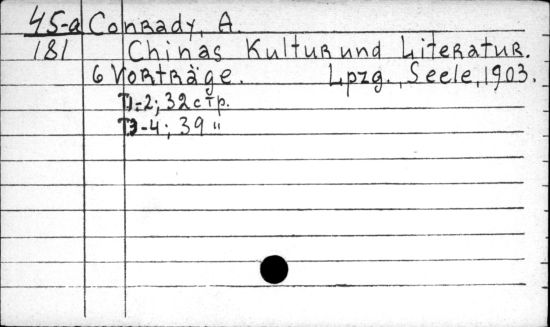 45-a Conrady, A.
181 Chinas Kultur und Literatur.
6 Vorträge. Lpzg., Seele, 1903.
T1-2; 32 стр.
T3-4; 39 "